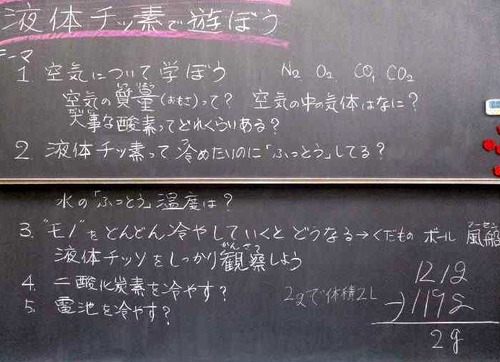 液体チッ素で遊ぼう
テーマ
1 空気について学ぼう N2 O2 CO, CO2
空気の質量(おもさ)って? 空気の中の気体はなに?
大事な酸素ってどれくらいある?
2. 液体チッ素って冷めたいのに「ふっとう」してる?
水の「ふっとう」温度は?
3. "モノ"をどんどん冷やしていくとどうなる→くだもの ボール 風船
液体チッソをしっかり観察しよう
4. 二酸化炭素を冷やす?
5. 電池を冷やす?
2gで体積2L
121g
-)119g
2g